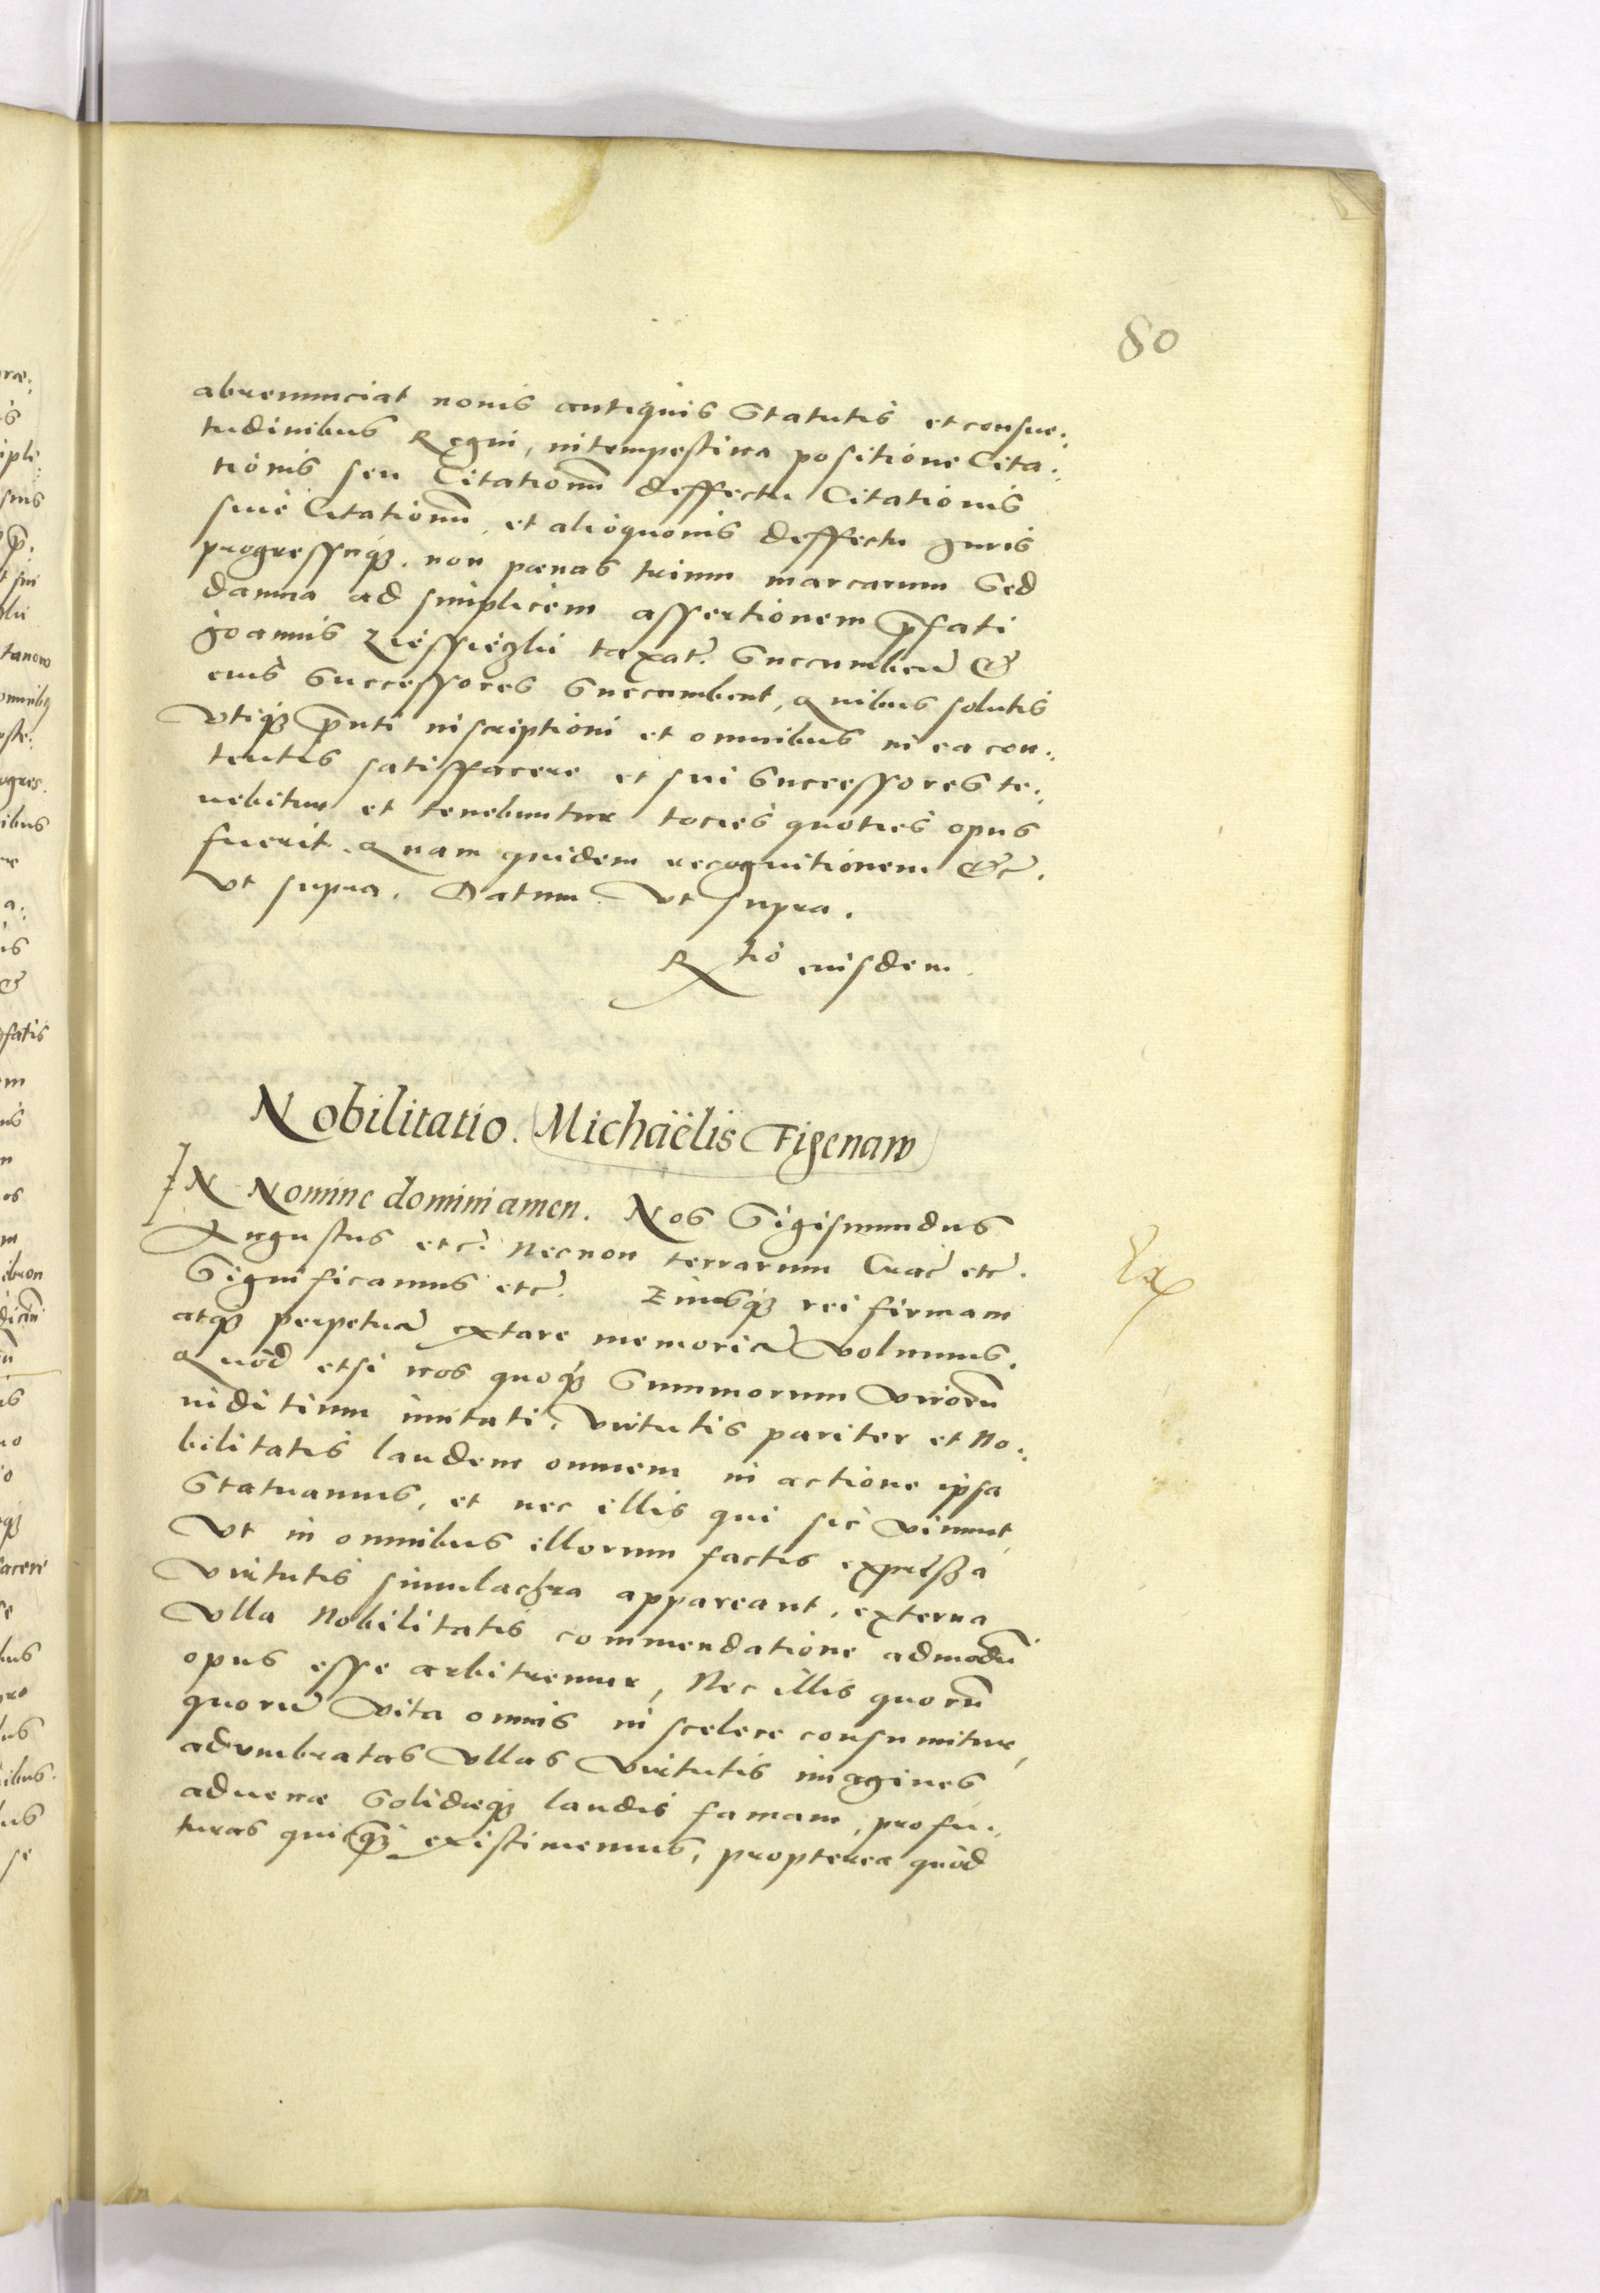 80
abrenunciat nouis antiquis Statutis et consue:
tudinibus Regni, intempestiua positione Cita:
tionis seu Citationũ deffectu Citationis
siue Citationũ, et alioquouis deffectu Iuris
progressuq́ꝫ. non pœnas trium marcarum Sed
damna ad simplicem assertionem p̃fati
Joannis taxat̃. Succumbent &
eius Successores Succumbent, Quibus solutis
Vtiq́ꝫ p̃nti inscriptioni et omnibus in ea con:
tentis satisffacere et sui Successores te:
nebitur et tenebuntur toties quoties opus
fuerit. Quam quidem recognitionem &c̃.
Vt supra. Datum Vt supra.
R tio eiusdem.
Nobilitatio. Michaëlis Figenaw
IN Nomine domini amen. Nos Sigismundus
Augustus etc̃. necnon terrarum Crac̃ etc̃.
Significamus etc̃. Eiusq́ꝫ rei firmam
atq́ꝫ perpetuã extare memoriã Volumus.
Quòd etsi nos quoq́ꝫ Summorum Virorũ
iuditium imitati, Virtutis pariter et No:
bilitatis laudem omnem in actione ipsa
Statuamus, et nec illis qui sic viuunt,
Vt in omnibus illorum factis expressa
Virtutis simulachra appareant, externa
Vlla Nobilitatis commendatione admodũ
opus esse arbitremur, Nec illis quorũ
quorũ Vita omnis in scelere consumitur,
adumbratas Vllas Virtutis imagines
ad veræ Solidæq́ꝫ laudis famam, profu:
turas existimemus, propterea quòd